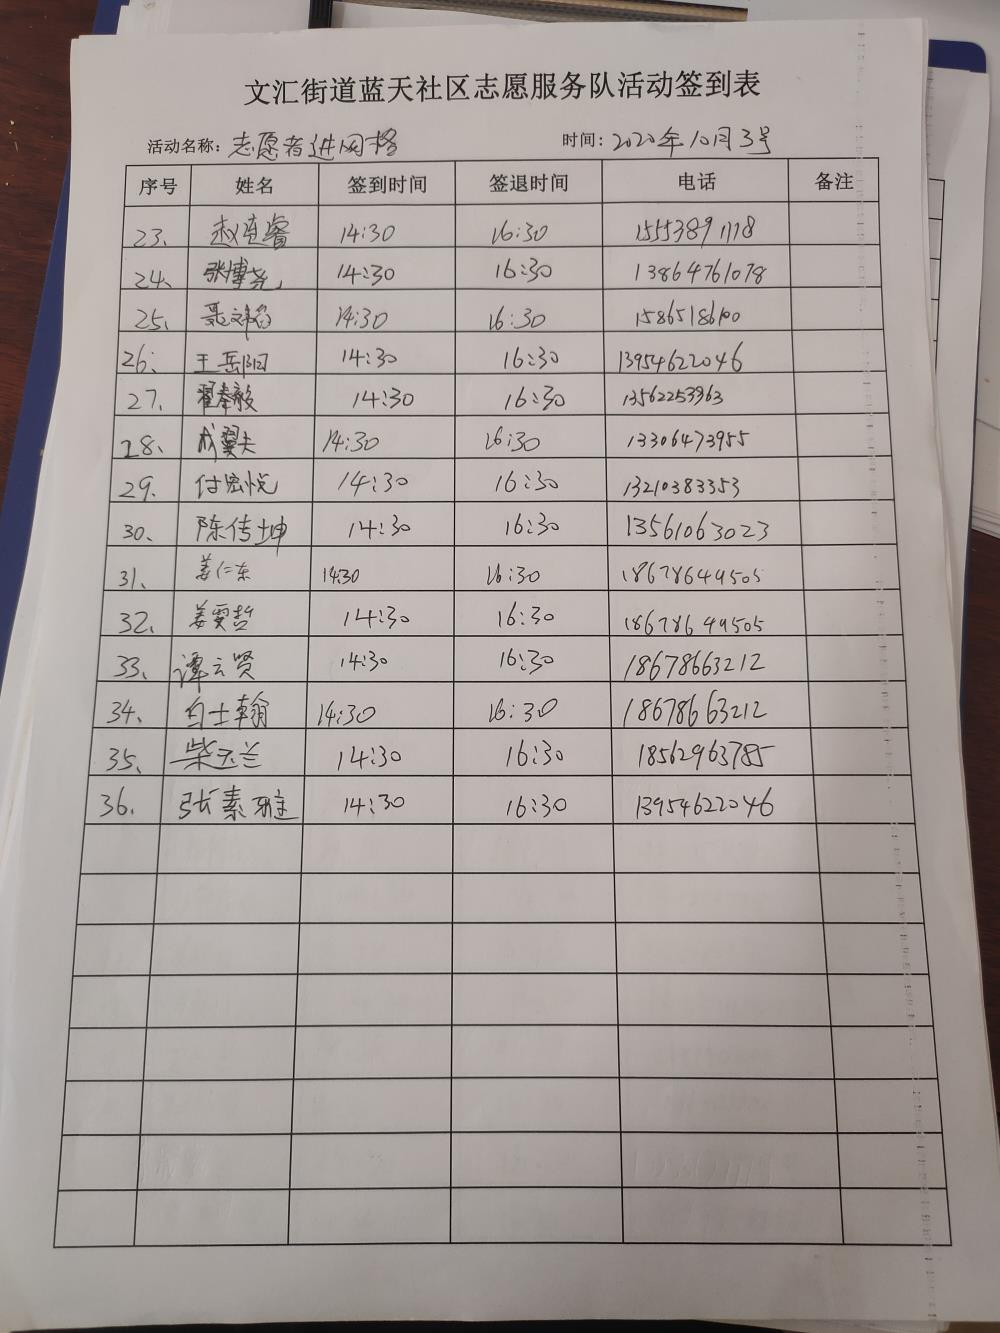 文汇街道蓝天社区志愿服务队活动签到表
活动名称：志愿者进网格 时间：2020年10月3号
序号 姓名 签到时间 签退时间 电话 备注
23、 赵连睿 14:30 16:30
24、 张博尧 14:30 16:30 13864761078
25、 14:30 16:30 15865186100
26、 王岳阳 14:30 16:30 13954622046
27、 翟奉毅 14:30 16:30 13562253963
28、 成翼夫 14:30 16:30 13306473955
29、 付宏悦 14:30 16:30 13210383353
30、 陈传坤 14:30 16:30 13561063023
31、 姜仁东 14:30 16:30 18678649505
32、 姜奕哲 14:30 16:30 18678649505
33、 谭云贤 14:30 16:30 18678663212
34、 白士翰 14:30 16:30 18678663212
35、 柴玉兰 14:30 16:30 18562963785
36、 张素雅 14:30 16:30 13954622046